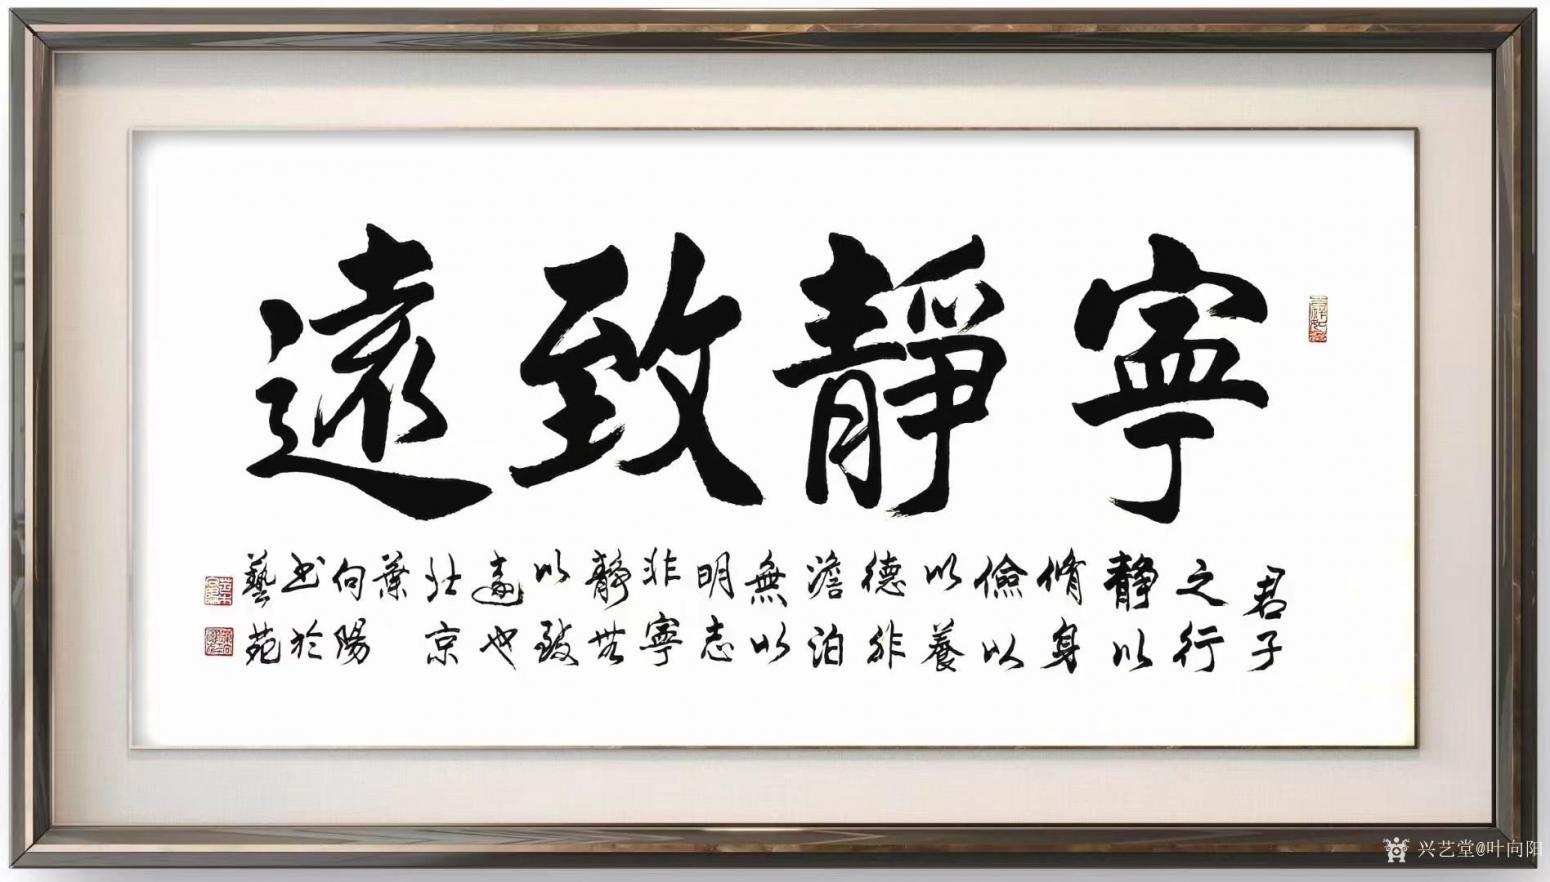 寧靜致遠
君子
之行
靜以
脩身
儉以
以養
德非
澹泊
無以
明志
非寧
靜無
以致
遠也
北京
葉
向陽
书於
藝苑
吉祥如意
兴艺堂@叶向阳